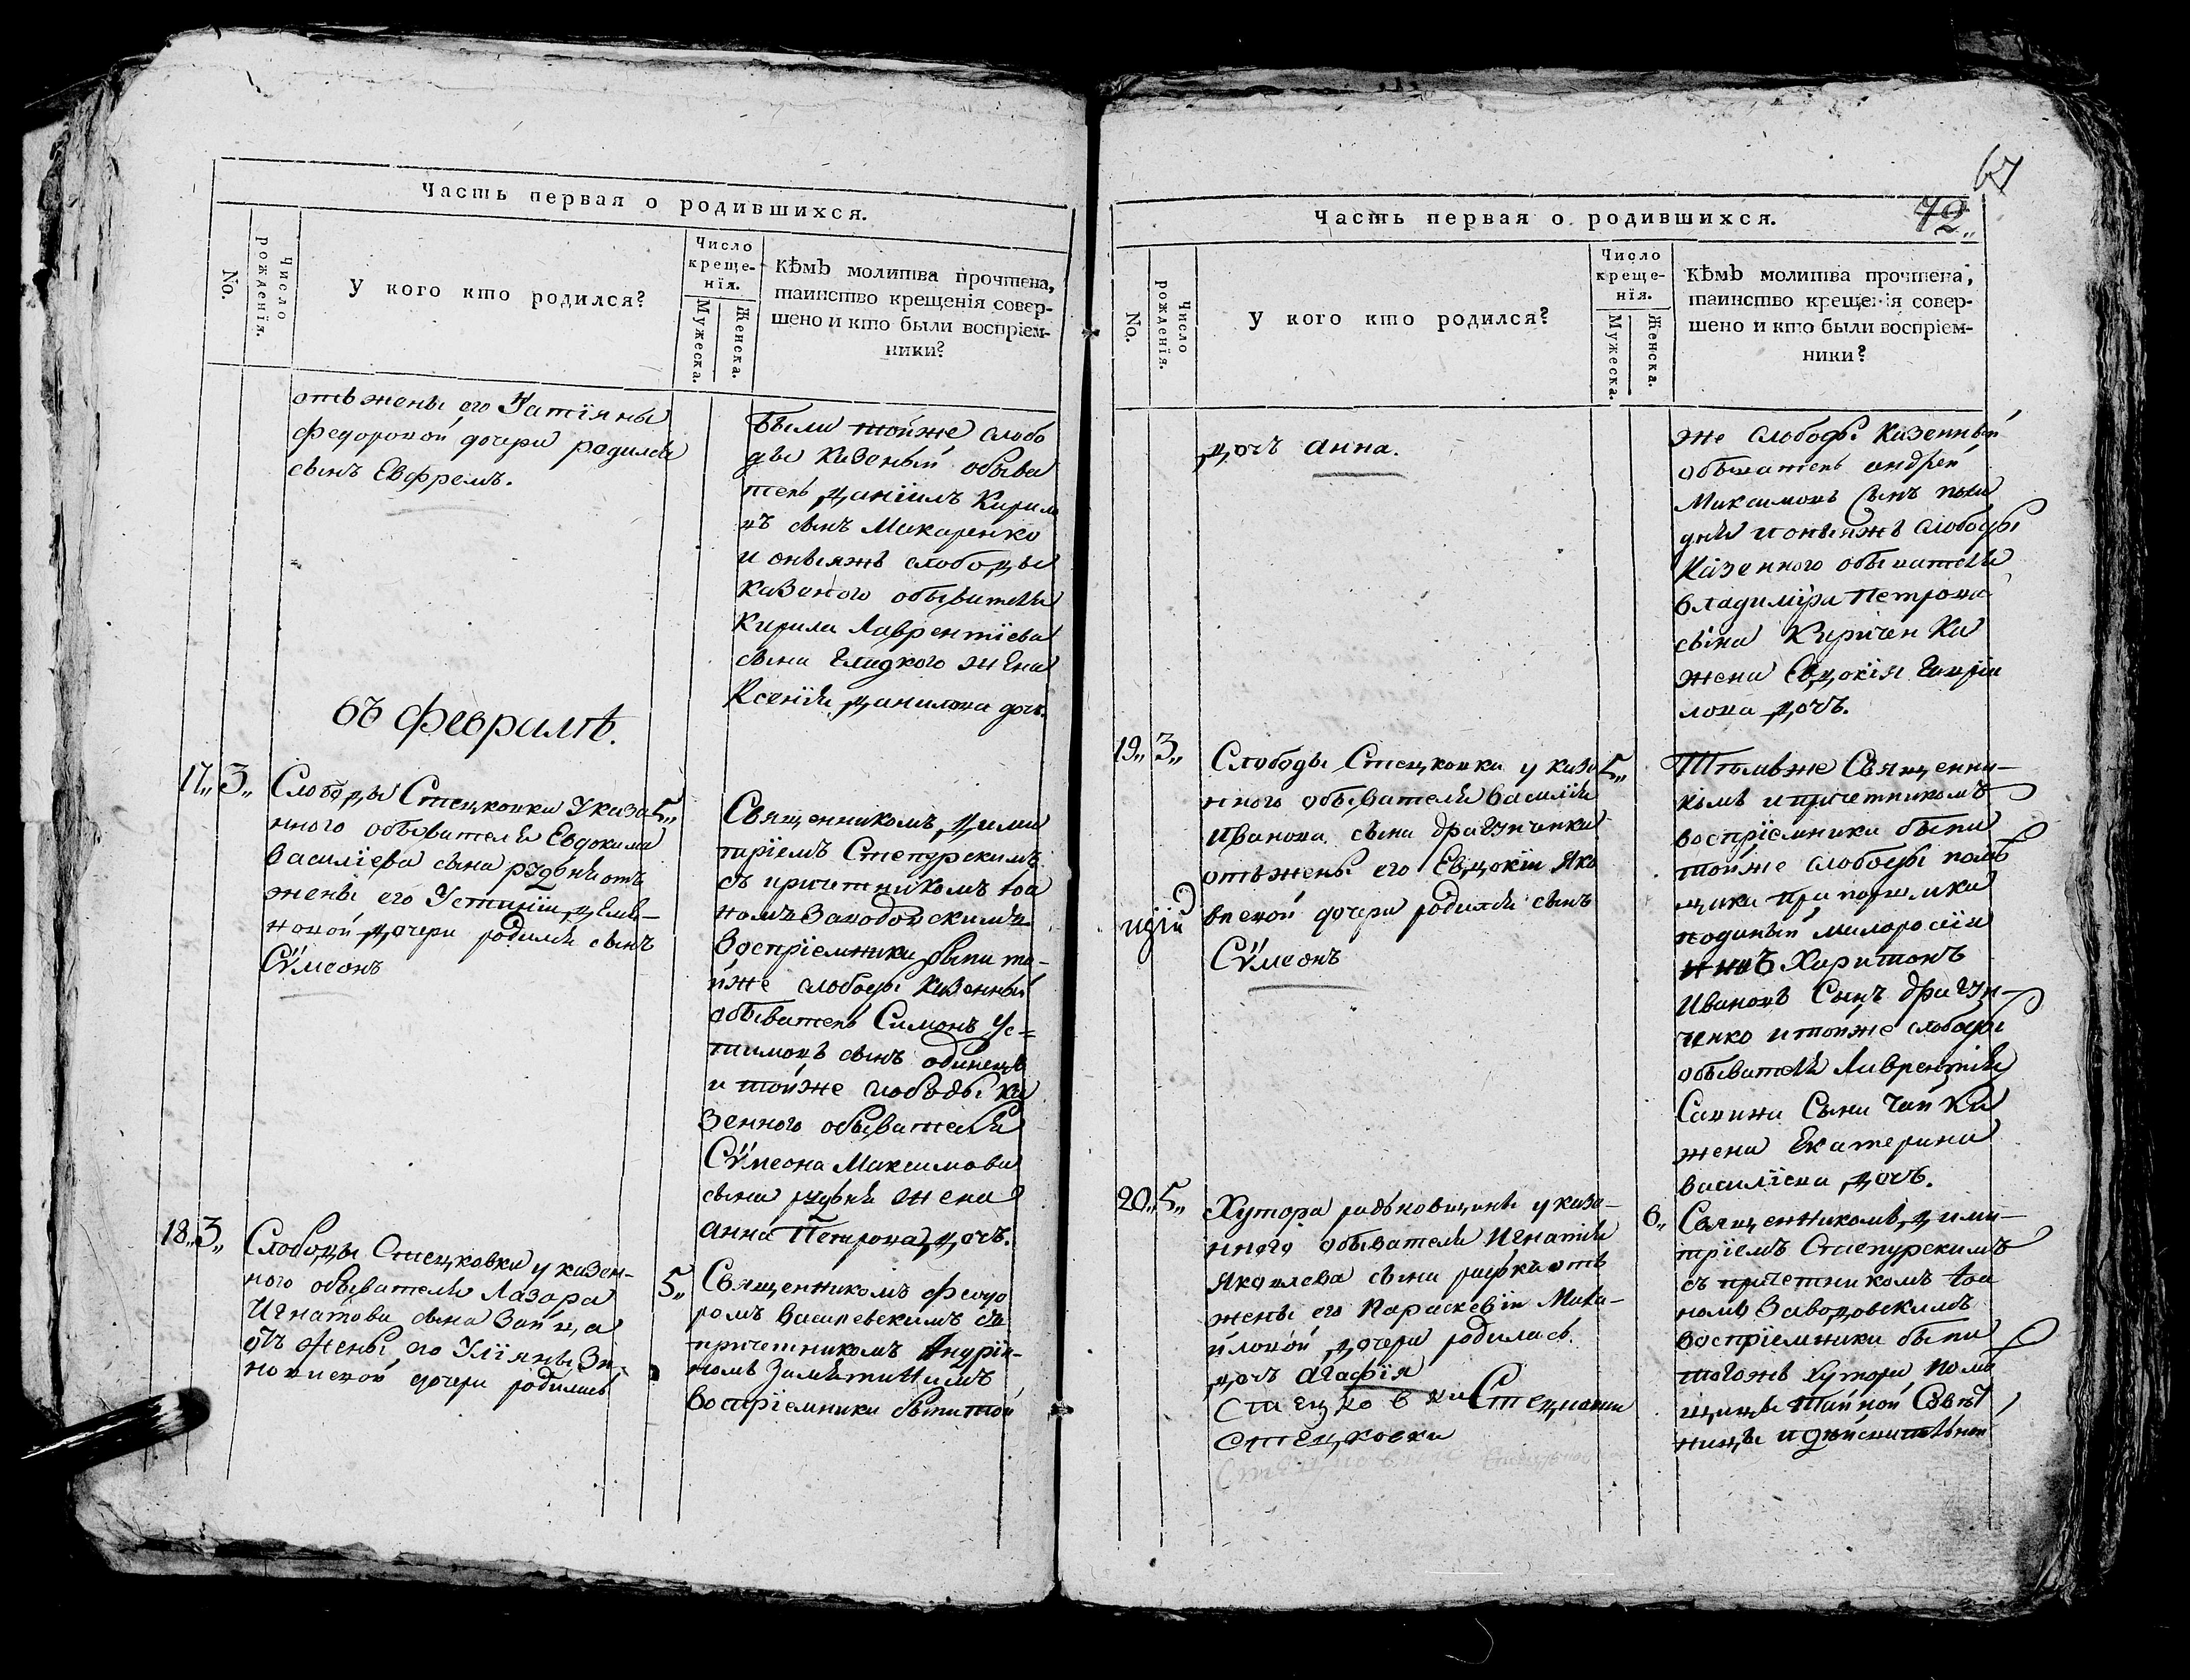 Часть первая о родившихся.
No.
Число рожденія.
У кого кто родился?
Число
креще-
нія.
Мужеска.
Женска.
Кѣмъ молитва прочтена,
таинство крещенія совер-
шено и кто были воспріем-
ники?
отъ жены его Татіяны
Федоровой дочери родился
сынъ Евфремъ.
были тойже слобо
ды казеный обыва
тель Даніилъ Кирил
въ сынъ Макаренко
и оныяжъ слободы
казеного обывателя
Кирила Лаврентіева
сына Гладкого жена
Ксенія Данилова дочь.
въ Февралѣ.
17„ 3„
Слободы Стецковки у каза
нного обывателя Евдокима
Василіева сына рудѣня отъ
жены его Устиніи Деми-
новой дочери родился сынъ
Сѵмеонъ
5„
Священникомъ Дими
тріемъ Степурскимъ
съ причетникомъ Іоа
номъ Заводовскимъ
Воспріемники были то-
йже слободы казенный
обыватель Симонъ Ус-
тимовъ сынъ одинецъ
и тойже слободы ка
зенного обывателя
Сѵмеона Максимова
сына рудня жена
Анна Петрова дочь.
18„ 3„
Слободы Стецковки у казен-
ного обывателя Лазара
Игнатова сына Зайца
отъ жены его Уліяны Зи-
новиевой дочери родилась
5„
Священникомъ Феодо
ромъ Василевскимъ съ
причетникомъ Андрія-
номъ
Воспріемники были той
67
72„
Часть первая о родившихся.
No.
Число рожденія.
У кого кто родился?
Число
креще-
нія.
Мужеска.
Женска.
Кѣмъ молитва прочтена,
таинство крещенія совер-
шено и кто были воспріем-
ники?
дочь Анна.
же слободы казенный
обыватель андрей
Максимовъ сынъ
и оныяжъ слободы
Казенного обывателя
Владиміра Петрова
сына Кириченка
жена Евдокія Гаврiи
лова дочь.
19„ 3„
Слободы Стецковки у казе
нного обывателя Василія
Иванова сына драгунченка
отъ жены его Евдокіи Яко
влевой дочери родился сынъ
Сѵмеонъ
5„
Тѣмъже Священни-
комъ и причетникомъ
воспріемники были
тойже слободы помѣ
щика
Харитонъ
Ивановъ Сынъ драгун-
ченко и тойже слободы
обывателя Лаврентія
Савина Сына Чайки
жена Екатерина
Василіева дочь.
20„ 5„
Хутора радьковщины у каза-
нного обывателя Игнатія
Яковлева сына отъ
жены его Параскевіи Миха-
йловой дочери родилась
дочь Агафія
Стецковки Стецковки
Стецковки
6„
Священникомъ Дими-
тріемъ Степурскимъ
съ причетникомъ Іоа
номъ Заводовскимъ
воспріемники были
тогожъ хутора помѣ
щицы Тайной Совѣт
ницы и дѣйствительной